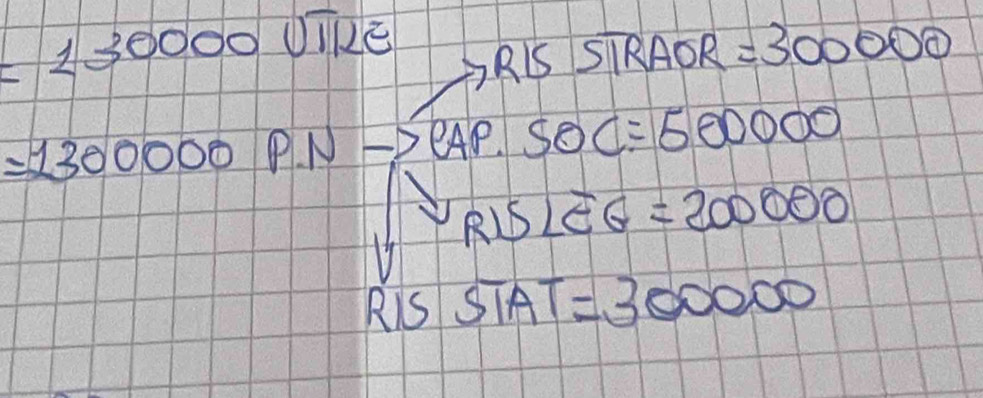 = 130000 UTILE
→ RIS STRAOR = 300000
= 1300000 P.N → CAP. SOC = 500000
RIS LEG = 200000
RIS STAT = 300000